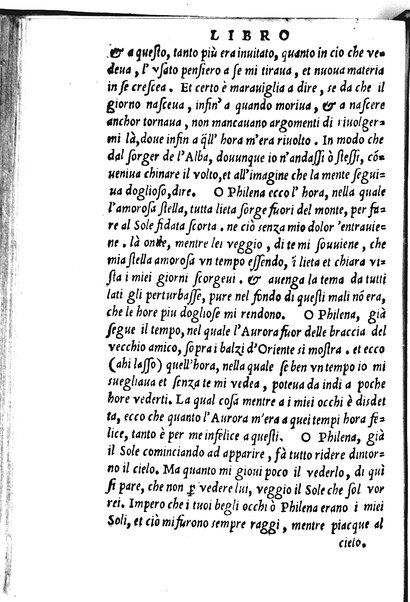 LIBRO
& a questo, tanto più era inuitato, quanto in cio che ve-
deua, l' vsato pensiero a se mi tiraua, et nuoua materia
in se crescea. Et certo è marauiglia a dire, se da che il
giorno nasceua, infin' a quando moriua, & a nascere
anchor tornaua, non mancauano argomenti di riuolger-
mi là, doue infin a q̃ll' hora m'era riuolto. In modo che
dal sorger de l'Alba, douunque io n'andassi ò stessi, cō-
ueniua chinare il volto, et all'imagine che la mente segui-
ua doglioso, dire. O Philena ecco l' hora, nella quale
l'amorosa stella, tutta lieta sorge fuori del monte, per fa-
re al Sole fidata scorta. ne ciò senza mio dolor 'entrauie-
ne. là onde, mentre lei veggio, di te mi souuiene, che
mia stella amorosa vn tempo essendo, ī lieta et chiara vi-
sta i miei giorni scorgeui. & auenga la tema da tutti
lati gli perturbasse, pure nel fondo di questi mali nō era,
che le hore piu dogliose mi rendono. O Philena, già
segue il tempo, nel quale l'Aurora fuor delle braccia del
vecchio amico, sopra i balzi d'Oriente si mostra. et ecco
(ahi lasso) quell'hora, nella quale se ben vn tempo io mi
suegliaua et senza te mi vedea, poteua da indi a poche
hore vederti. La qual cosa mentre a i miei occhi è disdet
ta, ecco che quanto l'Aurora m'era a quei tempi hora fe-
lice, tanto è per me infelice a questi. O Philena, già
il Sole cominciando ad apparire, fà tutto ridere dintor-
no il cielo. Ma quanto mi gioui poco il vederlo, di quì
si pare, che non ꝑ vedere lui, veggio il Sole che sol vor
rei. Impero che i tuoi begli occhi ò Philena erano i miei
Soli, et ciò mi furono sempre raggi, mentre piacque al
cielo.